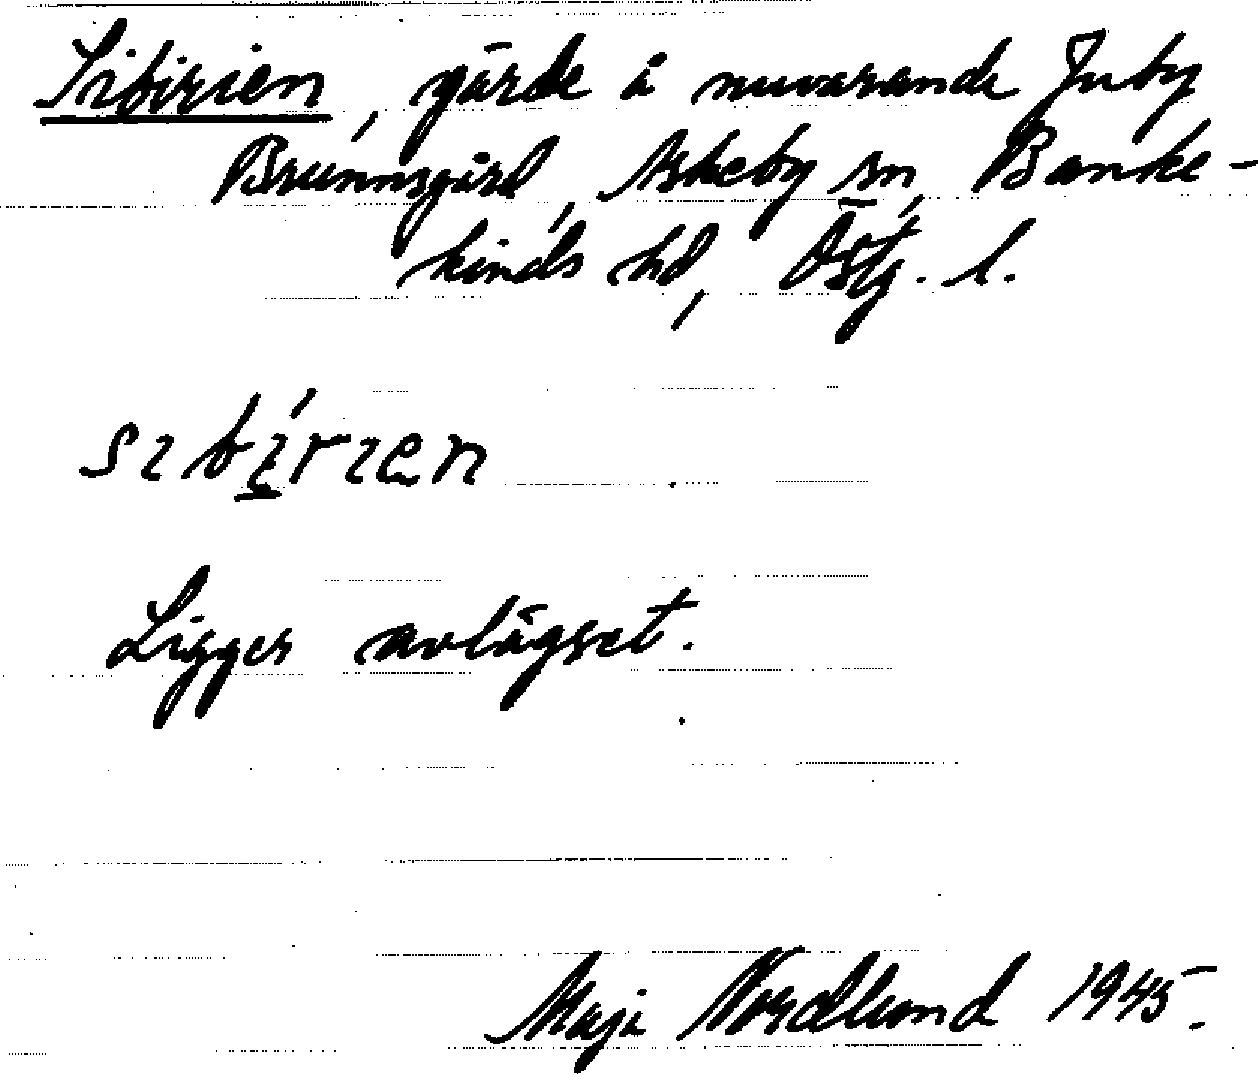 Sibirien, gärde å nuvarande Juby
Brunnsgård, Askeby sn, Banke-
kinds hd, Östg. l.
sıbı̱́rıen
Ligger avlägset.
Maja Nordlund 1945.